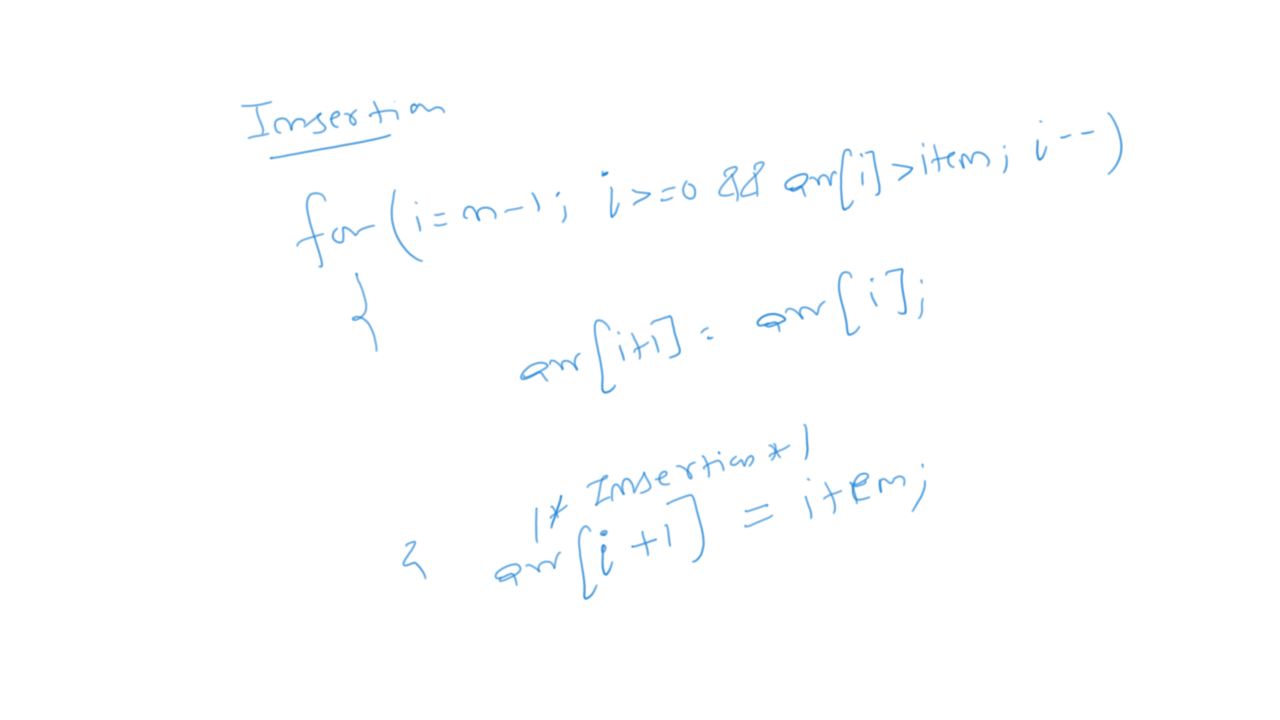 Insertion
for (i=n-1; i>=0 && arr[i]>item; i--)
{
arr[i+1] = arr[i];
/* Insertion */
{ arr[i+1] = item;